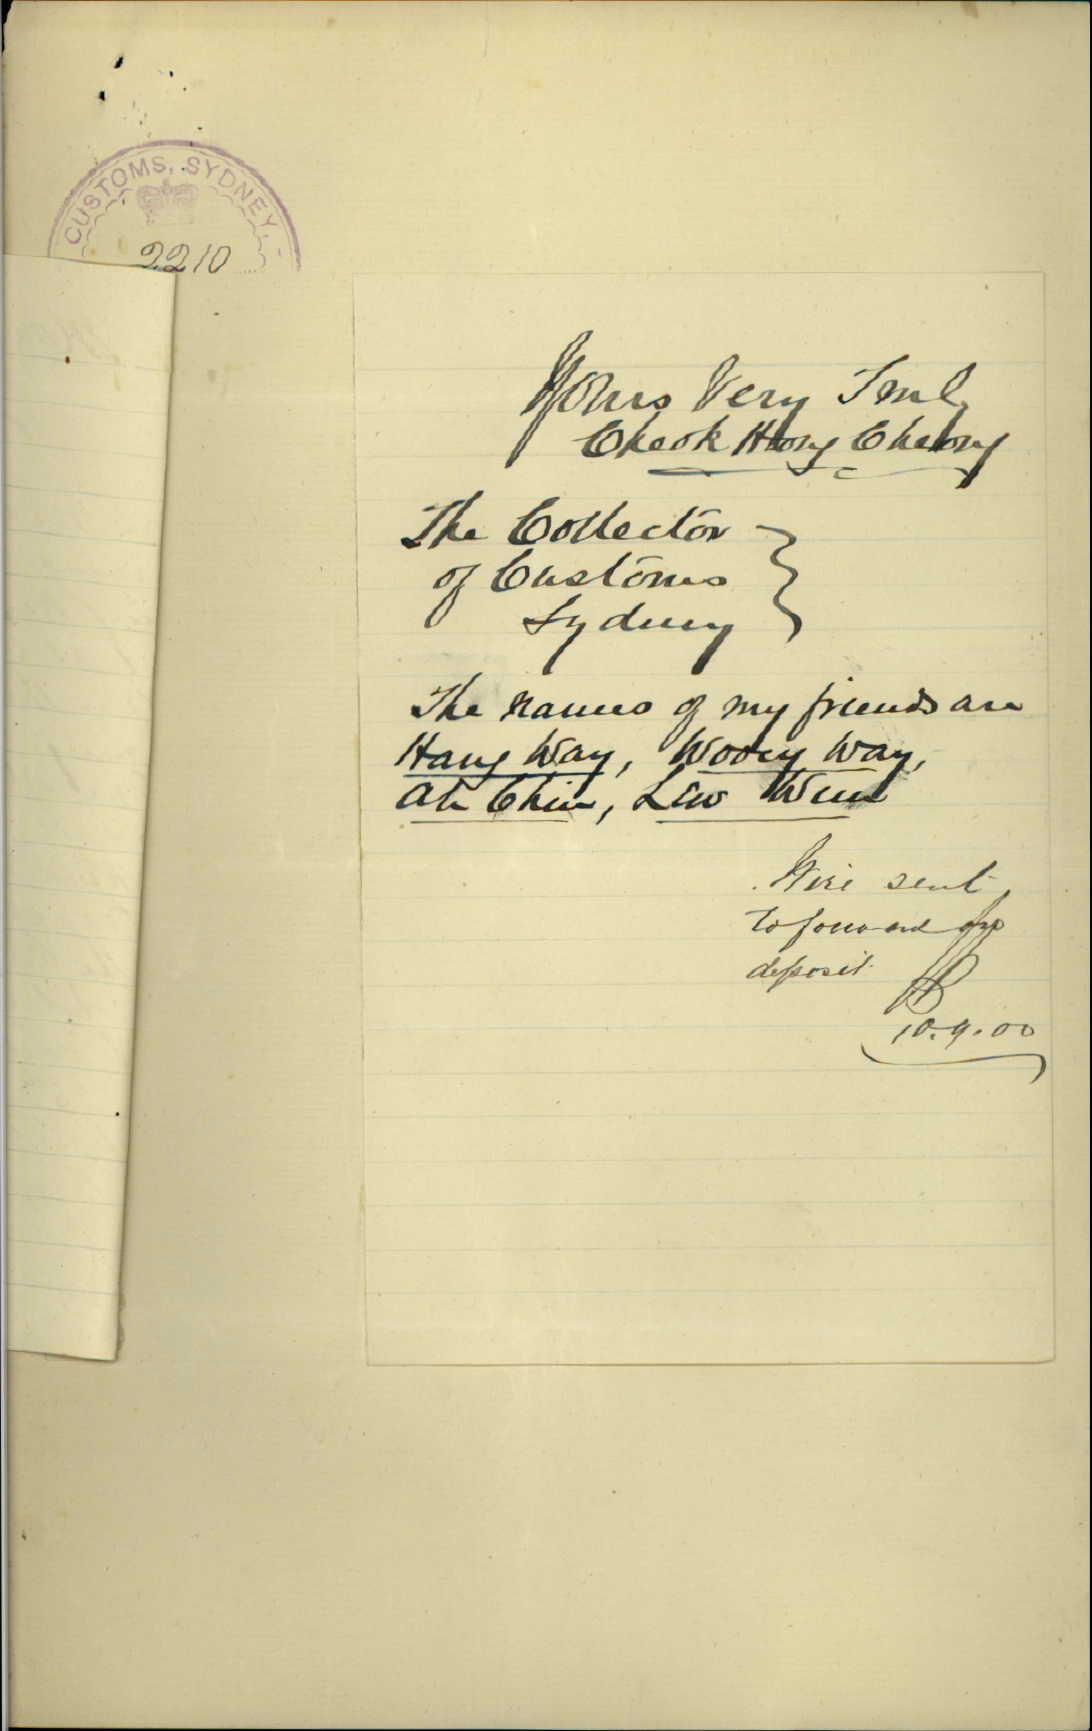 CUSTOMS, SYDNEY,
2210
Yours Very Truly
Cheok Hong Cheong
The Collector
of Customs
Sydney
The names of my friends are
Hang Way, Wooey Way,
Ah Chin, Lew Wun
Wire sent
to forward
deposit
10.9.00